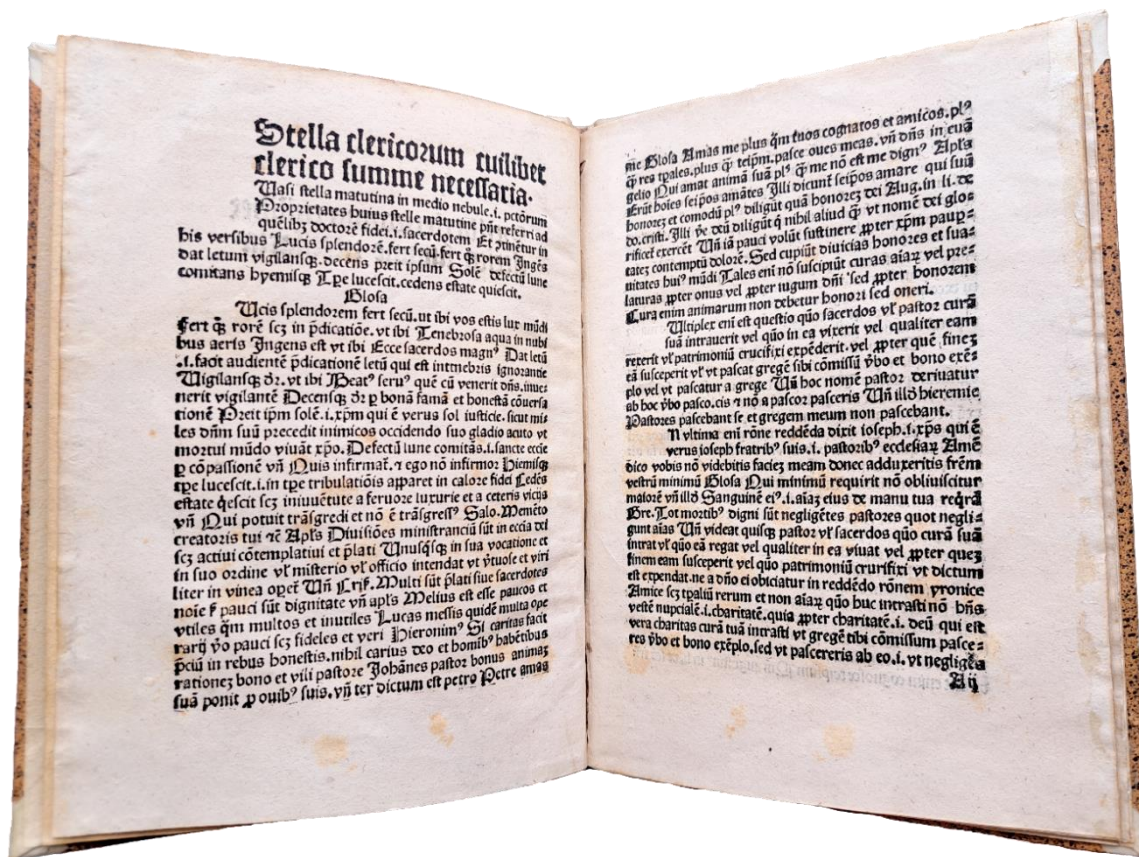 Stella clericorum cuilibet
clerico summe necessaria.
Uasi stella matutina in medio nebule.i.pctōrum
Proprietates huius stelle matutine pñt referri ad
quēlibꝫ doctorē fidei.i.sacerdotem Et ꝯtinētur in
his versibus Lucis splendorē.fert secū.fert qꝫ rorem Ingēs
dat letum vigilansqꝫ.decens preit ipsum Solē defectū lune
comitans hyemisqꝫ Tꝑe lucescit.cedens estate quiescit.
Glosa
Ucis splendorem fert secū.ut ibi vos estis lux mūdi
fert qꝫ rorē scꝫ in p̄dicatiōe.vt ibi Tenebrosa aqua in nubi
bus aeris Ingens est vt ibi Ecce sacerdos magnꝰ Dat letū
.i.facit audientē p̄dicationē letū qui est intenebris ignorantie
Uigilansqꝫ dr̄.vt ibi Beatꝰ seruꝰ quē cū venerit dñs.inue⸗
nerit vigilantē Decensqꝫ dr̄ ꝓ bonā famā et honestā cōuersa
tionē Preit ip̄m solē.i.xp̄m qui ē verus sol iusticie.sicut mi⸗
les dn̄m suū precedit inimicos occidendo suo gladio acuto vt
mortui mūdo viuāt xp̄o.Defectū lune comitās.i.sancte eccīe
ꝑ cōpassionē vn̄ Quis infirmat̄.⁊ ego nō infirmor Hiemisqꝫ
tꝑe lucescit.i.in tꝑe tribulatiōis apparet in calore fidei Cedēs
estate q̇escit scꝫ iniuuētute a feruore luxurie et a ceteris vicijs
vn̄ Qui potuit trāsgredi et nō ē trāsgressꝰ Salo.Memēto
creatoris tui ⁊c̄ Apl̄s Diuisiōes ministranciū sūt in eccīa dei
scꝫ actiui cōtemplatiui et p̄lati Unusq̇sqꝫ in sua vocatione et
in suo ordine vl̄ misterio vl̄ officio intendat vt v̓tuose et viri
liter in vinea operet̄ Un̄ Criſ. Multi sūt p̄lati siue sacerdotes
noīe ẜ pauci sūt dignitate vn̄ apl̄s Melius est esse paucos et
vtiles q̄m multos et inutiles Lucas messis quidē multa ope
rarij v̓o pauci scꝫ fideles et veri Hieronimꝰ Si caritas facit
p̄ciū in rebus honestis.nihil carius deo et homībꝰ habētibus
rationeꝫ bono et vili pastore Johānes pastor bonus animaꝫ
suā ponit ꝓ ouibꝰ suis.vn̄ ter dictum est petro Petre amas
me Glosa Amas me plus q̄m tuos cognatos et amicos.plꝰ
q̄ res tꝑales.plus q̄ teip̄m.pasce oues meas.vn̄ dn̄s in euā
gelio Qui amat animā suā plꝰ q̄ me nō est me dignꝰ Apl̄s
Erūt hoīes seip̄os amātes Illi dicunt̄ seip̄os amare qui suū
honoreꝫ et comodū plꝰ diligūt quā honoreꝫ dei Aug.in li.de
do.cristi.Illi v̓e deū diligūt q̇ nihil aliud q̄ vt nomē dei glo⸗
rificet̄ exercēt Un̄ iā pauci volūt sustinere ꝓpter xp̄m pauꝑ⸗
tateꝫ contemptū dolorē.Sed cupiūt diuicias honores et sua⸗
uitates huiꝰ mūdi Tales eni nō suscipiūt curas aīaꝝ vel pre⸗
laturas ꝓpter onus vel ꝓpter iugum dn̄i sed ꝓpter honorem
Cura enim animarum non debetur honori sed oneri.
Ultiplex eni est questio quō sacerdos vl̄ pastor curā
suā intrauerit vel quo in ea vixerit vel qualiter eam
rexerit vl̄ patrimoniū crucifixi expēderit.vel ꝓpter quē fineꝫ
eā susceperit vl̄ vt pascat gregē sibi cōmissū v̓bo et bono exē⸗
plo vel vt pascatur a grege Un̄ hoc nomē pastor deriuatur
ab hoc v̓bo pasco.cis ⁊ nō a pascor pasceris Un̄ illd̄ hieremie
Pastores pascebant se et gregem meum non pascebant.
N vltima eni rōne reddēda dixit ioseph.i.xp̄s qui ē
verus ioseph fratribꝰ suis.i.pastoribꝰ ecclesiaꝝ Amē
dico vobis nō videbitis facieꝫ meam donec adduxeritis frēm
vestrū minimū Glosa Qui minimū requirit nō obliuiscitur
maiorē vn̄ illd̄ Sanguinē eiꝰ.i.aīaꝫ eius de manu tua reqrā
Gre.Tot mortibꝰ digni sūt negligētes pastores quot negli⸗
gunt aīas Un̄ videat quisqꝫ pastor vl̄ sacerdos quō curā suā
intrat vl̄ quō eā regat vel qualiter in ea viuat vel ꝓpter queꝫ
finem eam susceperit vel quō patrimoniū crucifixi vt dictum
est expendat.ne a dño ei obiciatur in reddēdo rōnem yronice
Amice scꝫ tꝑaliū rerum et non aīaꝝ quō huc intrasti nō hn̄s
vestē nupcialē.i.charitatē.quia ꝓpter charitatē.i.deū qui est
vera charitas curā tuā intrasti vt gregē tibi cōmissum pasce⸗
res v̓bo et bono exēplo.sed vt pascereris ab eo.i.vt negligēs
A ij